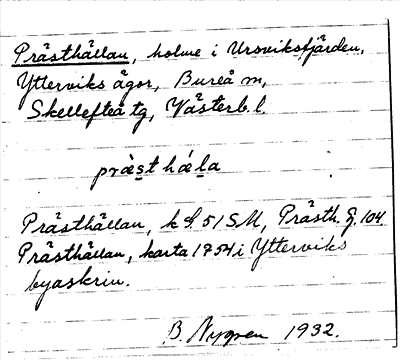 Prästhällan, holme i Ursviksfjärden,
Ytterviks ägor, Bureå sn,
Skellefteå tg, Västerb. l.
præ̀st hǽla
Prästhällan, k S. 51 SM, Prästh. G. 104.
Prästhällan, karta 1754 i Ytterviks
byaskrin.
B. Nygren 1932.